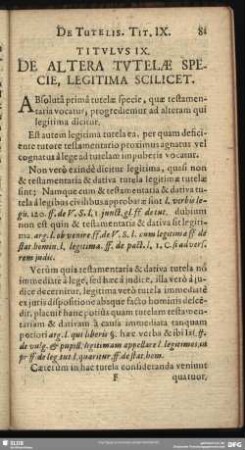 DE TUTELIS. TIT. IX. 81
TITVLVS IX.
DE ALTERA TVTELÆ SPE
CIE, LEGITIMA SCILICET.
ABsolutâ primâ tutelæ specie, quæ testamen-
taria vocatur, progrediemur ad alteram quæ
legitima dicitur.
Est autem legitima tutela ea, per quam deficien-
te tutore testamentario proximus agnatus vel
cognatus à lege ad tutelam impuberis vocatur.
Non verò eaindè dicitur legitima, quasi non
& testamentaria & dativa tutela legitimæ
sint; Namque cum & testamentaria & dativa tu-
tela à legibus civilibus approbatæ sint l. verbis le-
gis. 120. ff. de V. S. l. 1. junct. gl. ff. de tut. dubium
non est quin & testamentaria & dativa sit legiti-
ma. arg. l. ff. de V. S. l. cum legitimæ ff de
stat. homin. l. legitima. ff. de pact. l. 1. C. si advers.
rem judic.
Verùm quia testamentaria & dativa tutela nō
immediatè à lege, sed hæc à judice, illa verò à ju-
dice decernitur, legitima verò tutela immediatè
ex juris dispositione absque facto hominis defe-
datur, placuit hanc potiùs quam tutelam testamen-
tariam & dativam à causa immediata tanquam
potiori arg. l. qui liberis §. hæc verba & ibi
ff.
de vulg. & pupill. legitimam appellare l. legitimos, in
pr ff. de leg. tut. l. quæritur. ff. de stat. hom.
Cæterùm in hac tutela consideranda veniunt
F quatuor,